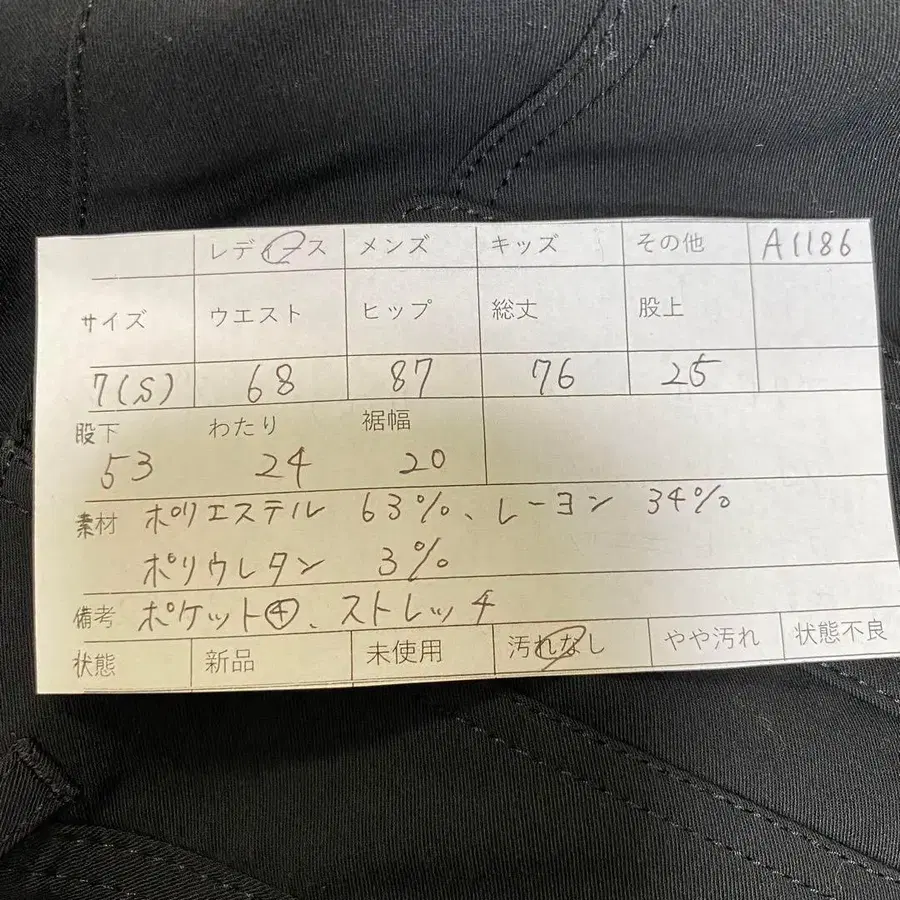 レディース メンズ キッズ その他 A1186
サイズ ウエスト ヒップ 総丈 股上
7(S) 68 87 76 25
股下 わたり 裾幅
53 24 20
素材 ポリエステル 63%、レーヨン 34%
ポリウレタン 3%
備考 ポケット④、ストレッチ
状態 新品 未使用 汚れなし やや汚れ 状態不良